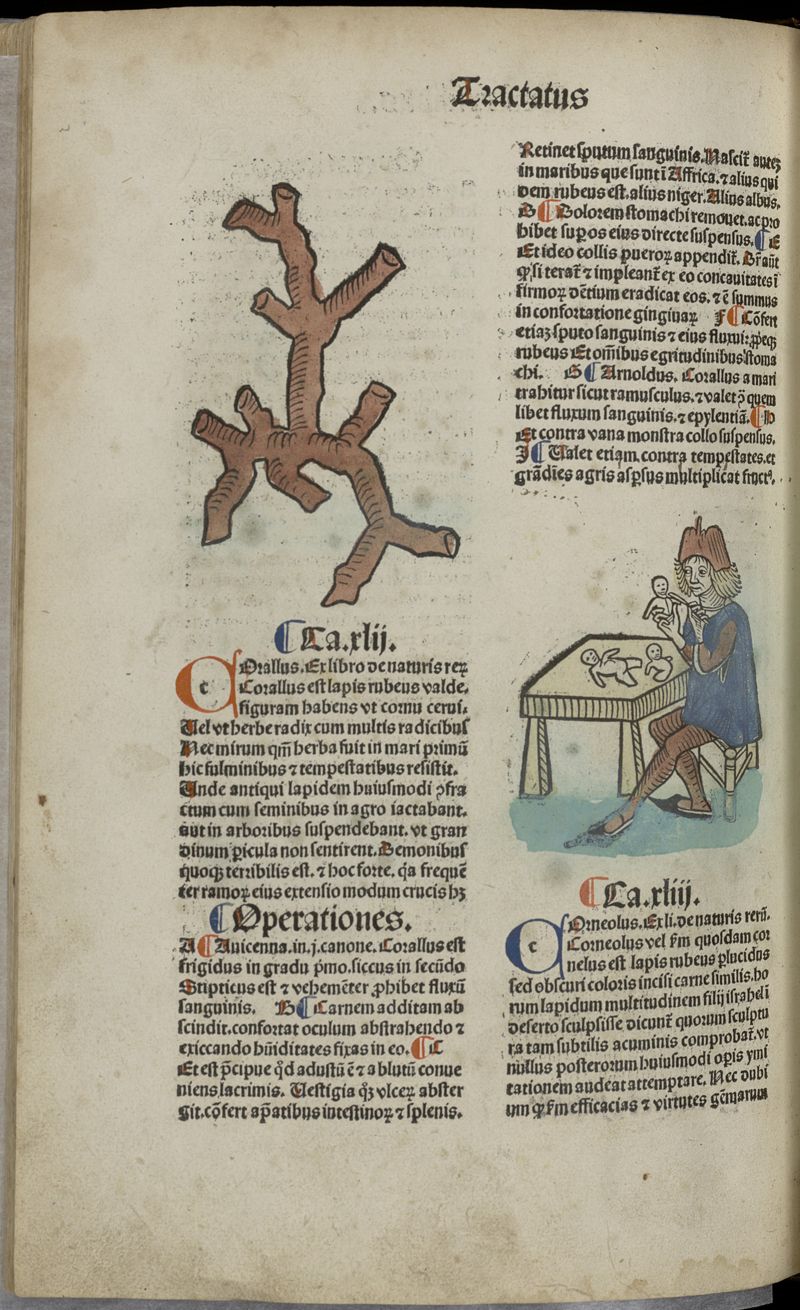 Tractatus
Ca.xlij.
COrallus. Ex libro de naturis reꝝ
Corallus est lapis rubeus valde.
figuram habens vt cornu cerui.
Uel vt herbe radix cum multis radicibus
Nec mirum qm̄ herba fuit in mari primū
hic fulminibus ⁊ tempestatibus resistit.
Unde antiqui lapidem huiusmodi ꝯfra
ctum cum seminibus in agro iactabant.
aut in arboribus suspendebant. vt gran
dinum ꝑicula non sentirent. Demonibus
quoqꝫ terribilis est. ⁊ hoc forte. q̇a frequē
ter ramoꝝ eius extensio modum crucis hꝫ
¶ Operationes.
A ¶ Auicenna. in. j. canone. Corallus est
frigidus in gradu pͥmo. siccus in secūdo
Stipticus est ⁊ vehemēter ꝓhibet fluxū
sanguinis. B ¶ Carnem additam ab
scindit. confortat oculum abstrahendo ⁊
exiccando hūiditates fixas in eo. ¶ C
Et est p̄cipue qd̄ adustū ē ⁊ ablutū conue
niens lacrimis. Uestigia qꝫ vlceꝝ abster
git. cōfert aꝑatibus intestinoꝝ ⁊ splenis.
Retinet sputum sanguinis. Nascit̄ auteꝫ
in maribus que sunt ī Affrica. ⁊ alius qui
dem rubeus est. alius niger. Alius albus.
D ¶ Dolorem stomachi remouet. ac pro
hibet suꝑ os eius directe suspensus. ¶ E
Et ideo collis pueroꝝ appendit̄. Dr̄ aūt
ꝙ si terat̄ ⁊ impleant̄ ex eo concauitates ī
firmoꝝ dētium eradicat eos. ⁊ ē summus
in confortatione gingiuaꝝ F ¶ Cōfert
etiaꝫ sputo sanguinis ⁊ eius fluxui: p̄cipueqꝫ
rubeus Et om̄ibus egritudinibus stoma
chi. G ¶ Arnoldus. Corallus a mari
trahitur sicut ramusculus. ⁊ valet ꝯ quem
libet fluxum sanguinis. ⁊ epylentiā. ¶ H
Et contra vana monstra collo suspensus.
I ¶ Ualet etiam contra tempestates. et
grādīes agris asꝑsus multiplicat fructꝰ.
¶ Ca.xliij.
COrneolus. Ex li. de naturis rerū.
Corneolus vel fm̄ quosdam cor
nelus est lapis rubeus ꝑlucidus
sed obscuri coloris incisi carne similis. ho
rum lapidum multitudinem filij israhel ī
deserto sculpsisse dicunt̄ quorum sculptu
ra tam subtilis acuminis comprobat̄. vt
nullus posterorum huiusmodi oꝑis ymi
tationem audeat attemptare. Nec dubi
um ꝙ fm̄ efficacias ⁊ virtutes gēmarum